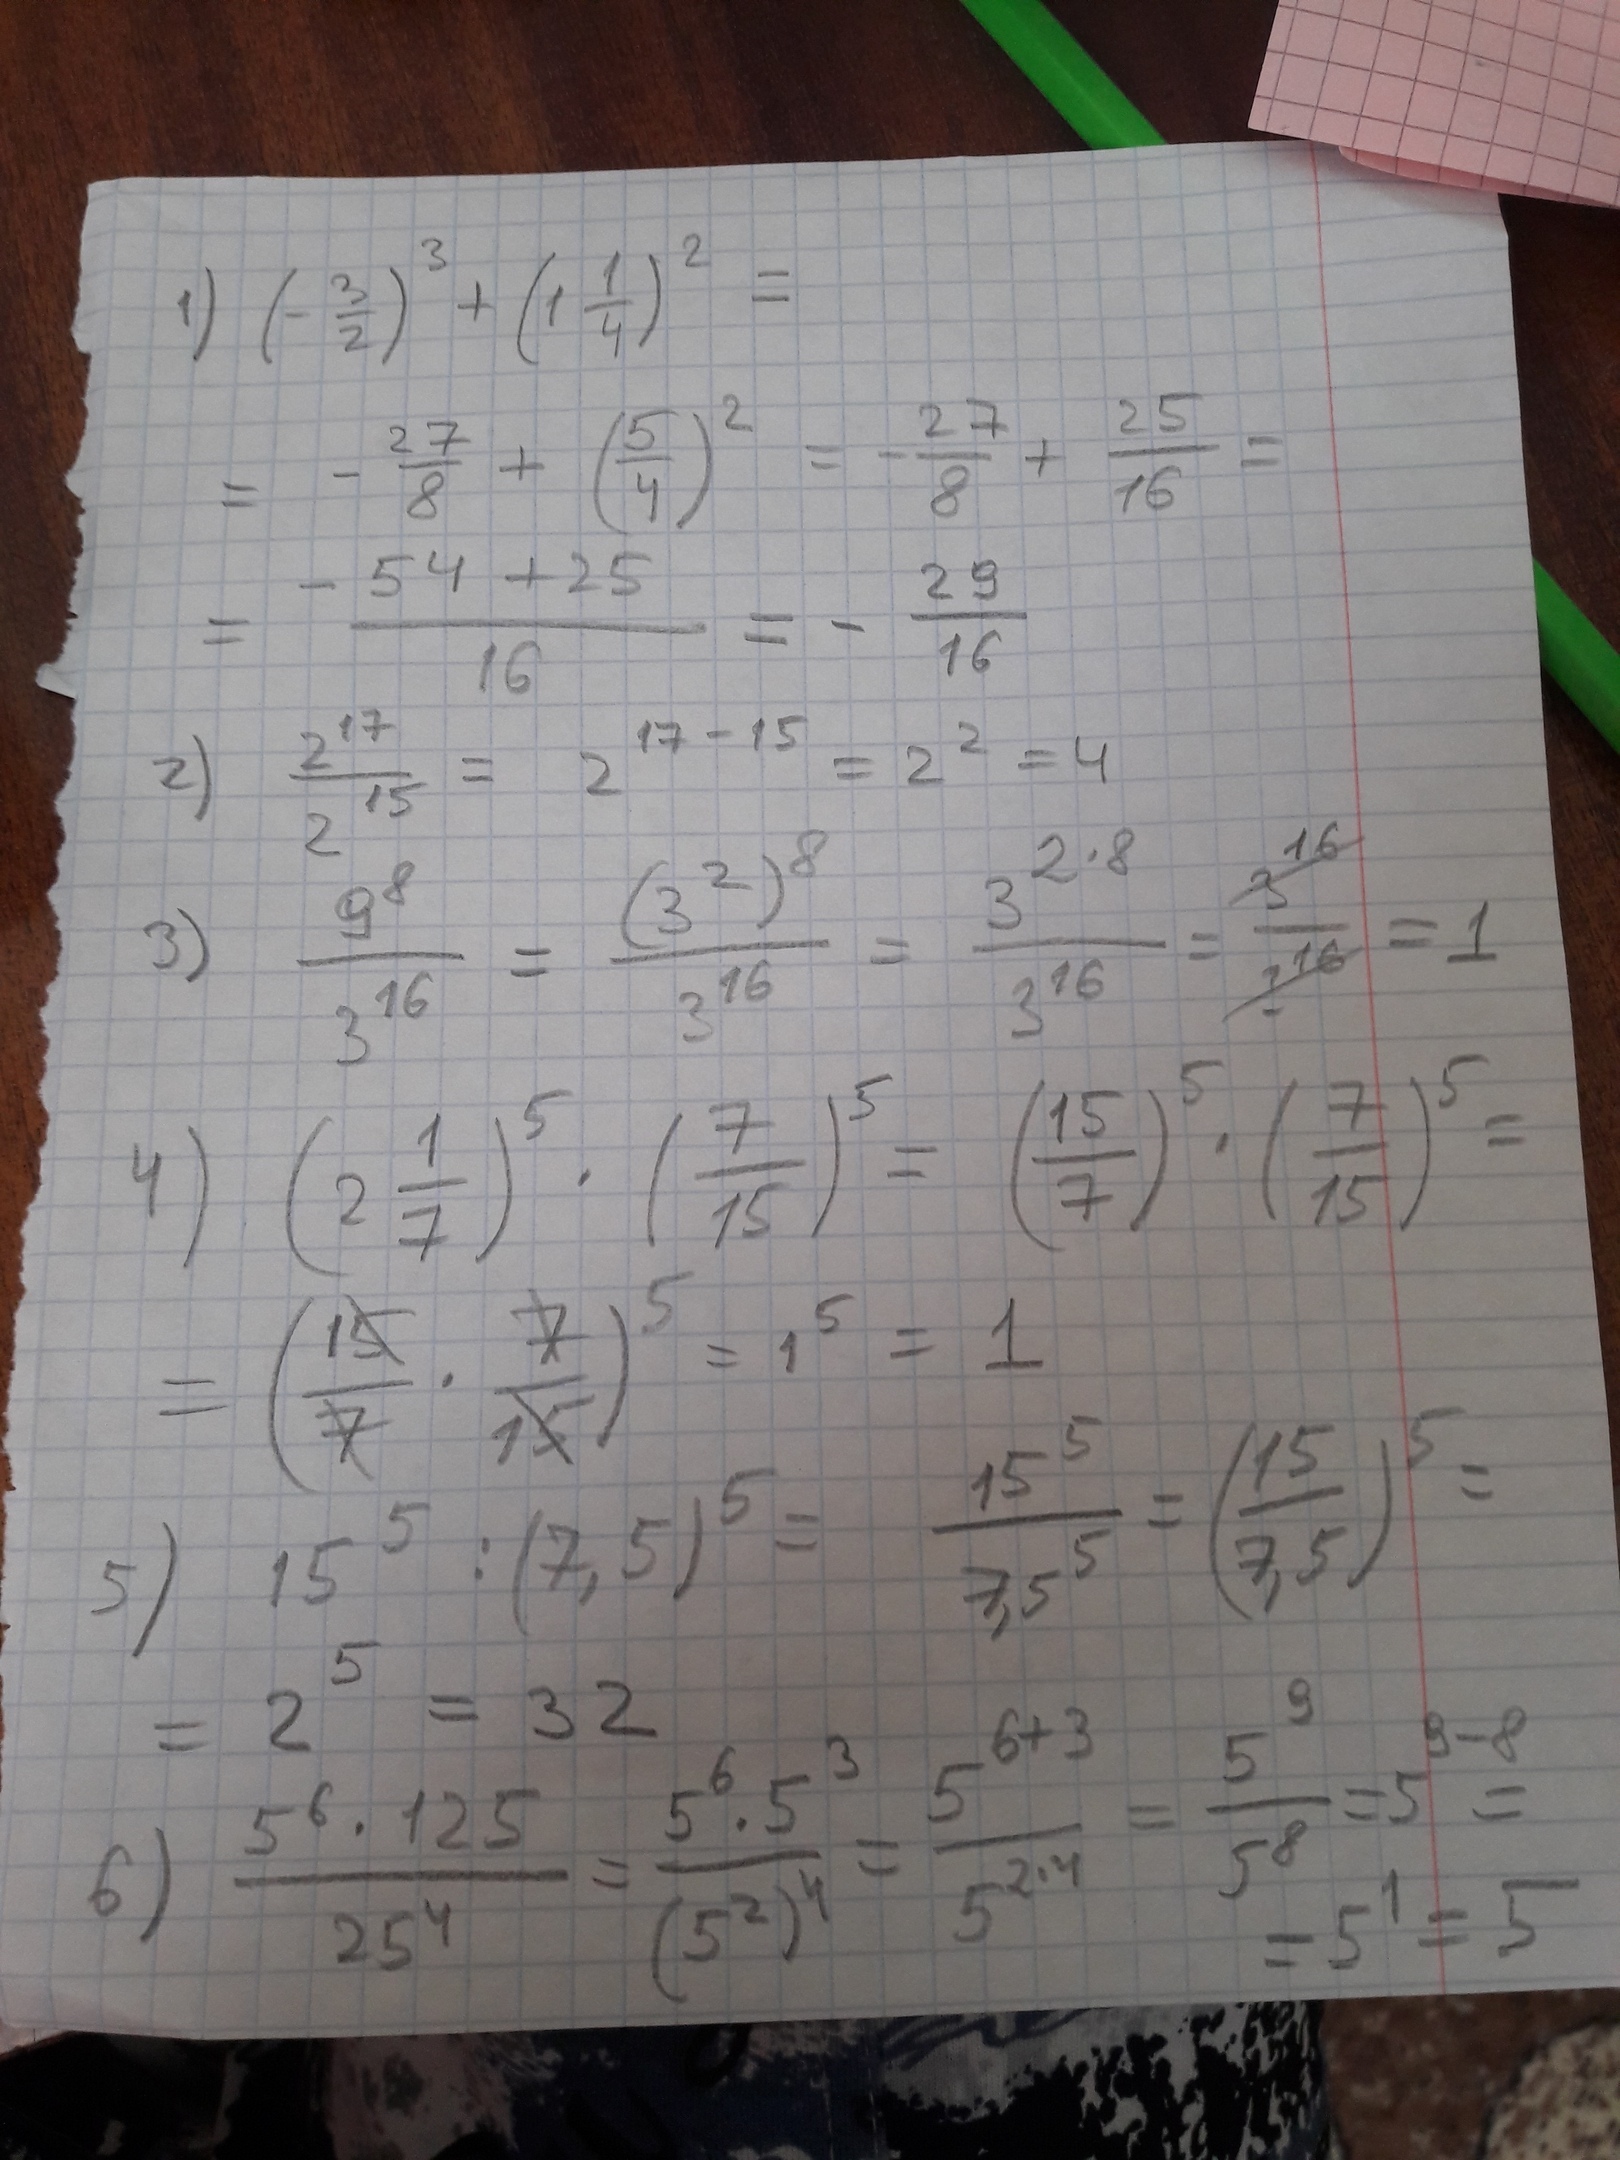 1) (-3/2)^3 + (1 1/4)^2 =
= - 27/8 + (5/4)^2 = - 27/8 + 25/16 =
= (- 54 + 25)/16 = - 29/16
2) 2^17/2^15 = 2^(17-15) = 2^2 = 4
3) 9^8/3^16 = (3^2)^8/3^16 = 3^(2·8)/3^16 = 3^16/3^16 = 1
4) (2 1/7)^5 · (7/15)^5 = (15/7)^5 · (7/15)^5 =
= (15/7 · 7/15)^5 = 1^5 = 1
5) 15^5 : (7,5)^5 = 15^5/7,5^5 = (15/7,5)^5 =
= 2^5 = 32
6) (5^6 · 125)/25^4 = (5^6 · 5^3)/(5^2)^4 = 5^(6+3)/5^(2·4) = 5^9/5^8 = 5^(9-8) =
= 5^1 = 5